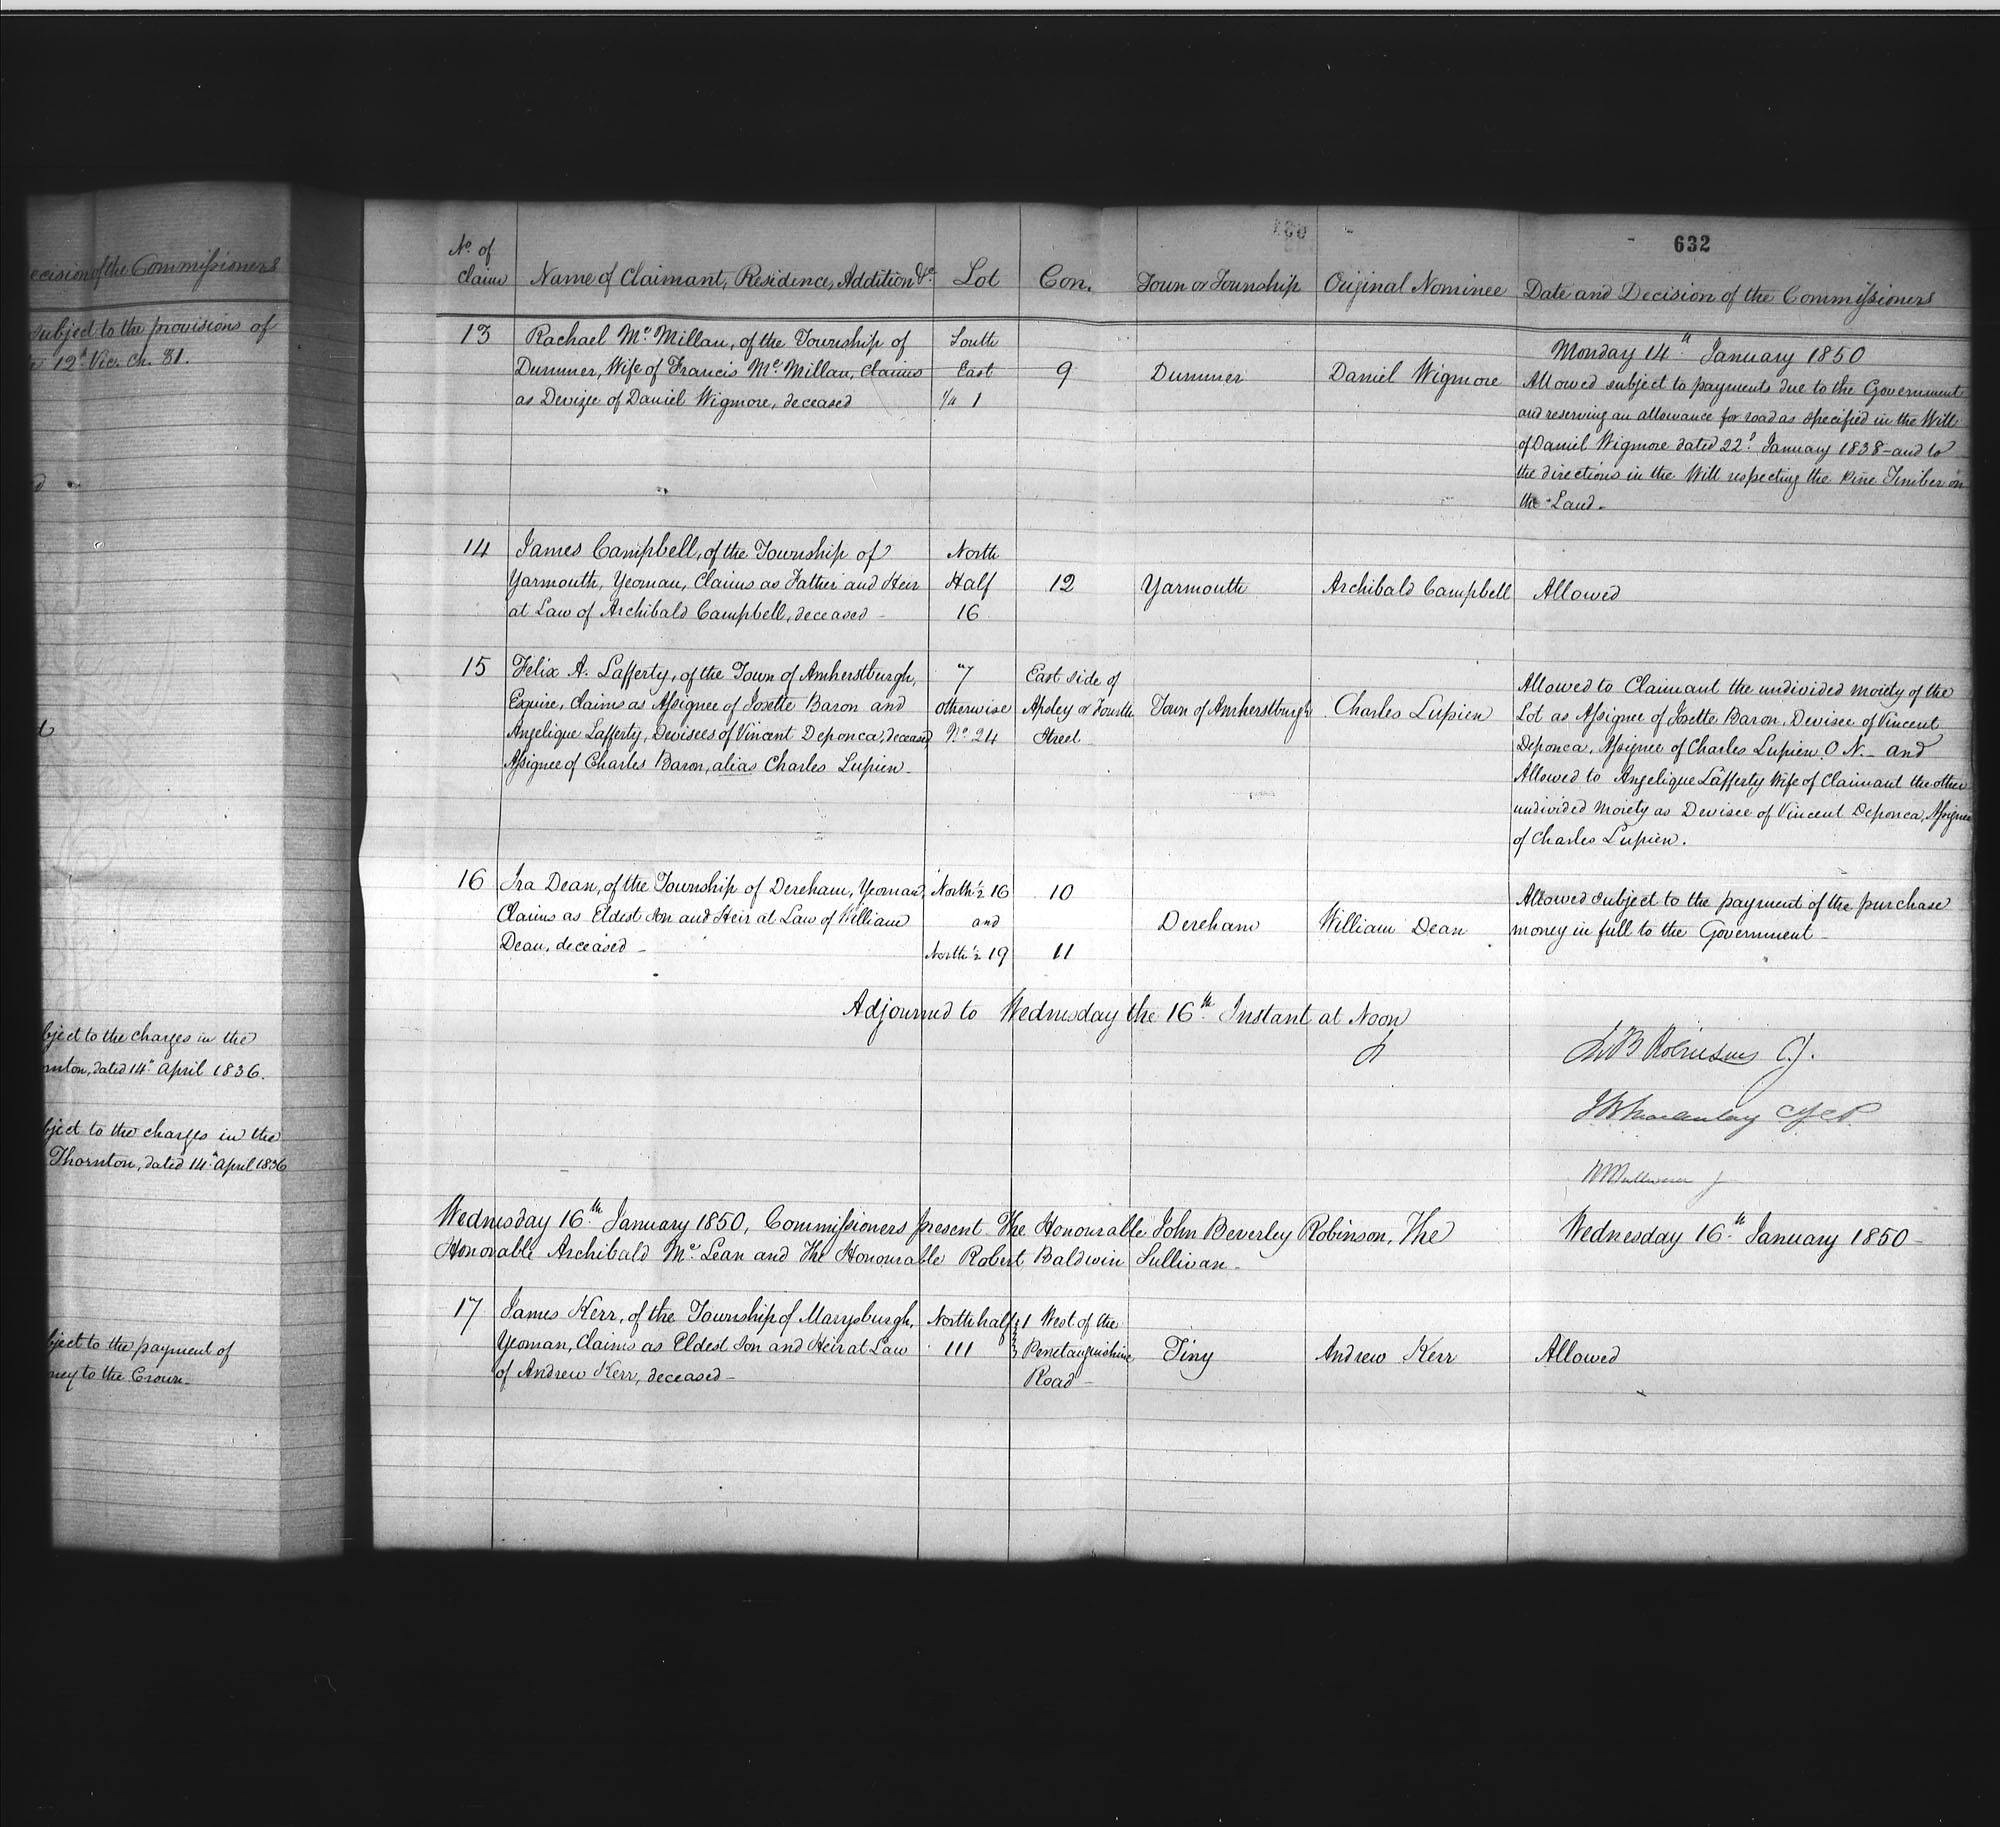 ecision of the Commissioners
Subject to the provisions of
12th Vic. Ch. 81.
bject to the charges in the
rnton, dated 14th April 1836.
bject to the charges in the
Thornton, dated 14th April 1836
bject to the payment of
ney to the Crown
632
No. of
Claim
Name of Claimant, Residence, Addition &c.
Lot
Con.
Town or Township
Original Nominee
Date and Decision of the Commissioners
13
Rachael McMillan, of the Township of
Dummer, Wife of Francis McMillan, Claims
as Devizee of Daniel Wigmore, deceased
South
East
1/4 1
9
Dummer
Daniel Wigmore
Monday 14th January 1850
Allowed subject to payments due to the Government
and reserving an allowance for road as specified in the Will
of Daniel Wigmore dated 22d January 1838 - and to
the directions in the Will respecting the Pine Timber on
the Land.
14
James Campbell, of the Township of
Yarmouth, Yeoman, Claims as Father and Heir
at Law of Archibald Campbell, deceased -
North
Half
16
12
Yarmouth
Archibald Campbell
Allowed
15
Felix A. Lafferty, of the Town of Amherstburgh,
Esquire, Claims as Assignee of Josette Baron and
Angelique Lafferty, Devisees of Vincent Deponca, deceased
Assignee of Charles Baron, alias Charles Lupien -
7
otherwise
No. 24
East side of
Apsley or Fourth
Street
Town of Amherstburgh
Charles Lupien
Allowed to Claimant the undivided moiety of the
Lot as Assignee of Josette Baron, Devisee of Vincent
Deponca, Assignee of Charles Lupien O. N. - and
Allowed to Angelique Lafferty Wife of Claimant the other
undivided moiety as Devisee of Vincent Deponca, Assignee
of Charles Lupien.
16
Ira Dean, of the Township of Dereham, Yeoman,
Claims as Eldest Son and Heir at Law of William
Dean, deceased -
North 1/2 16
and
North 1/2 19
10
11
Dereham
William Dean
Allowed subject to the payment of the purchase
money in full to the Government -
Adjourned to Wednesday the 16th Instant at Noon
Jno B Robinson C.J.
J B Macaulay C J C P.
Wednesday 16th January 1850, Commissioners present The Honourable John Beverley Robinson, The
Honorable Archibald McLean and The Honourable Robert Baldwin Sullivan -
Wednesday 16th January 1850 -
17
James Kerr, of the Township of Marysburgh,
Yeoman, Claims as Eldest Son and Heir at Law
of Andrew Kerr, deceased -
North half
111
1 West of the
Penetanguishine
Road -
Tiny
Andrew Kerr
Allowed